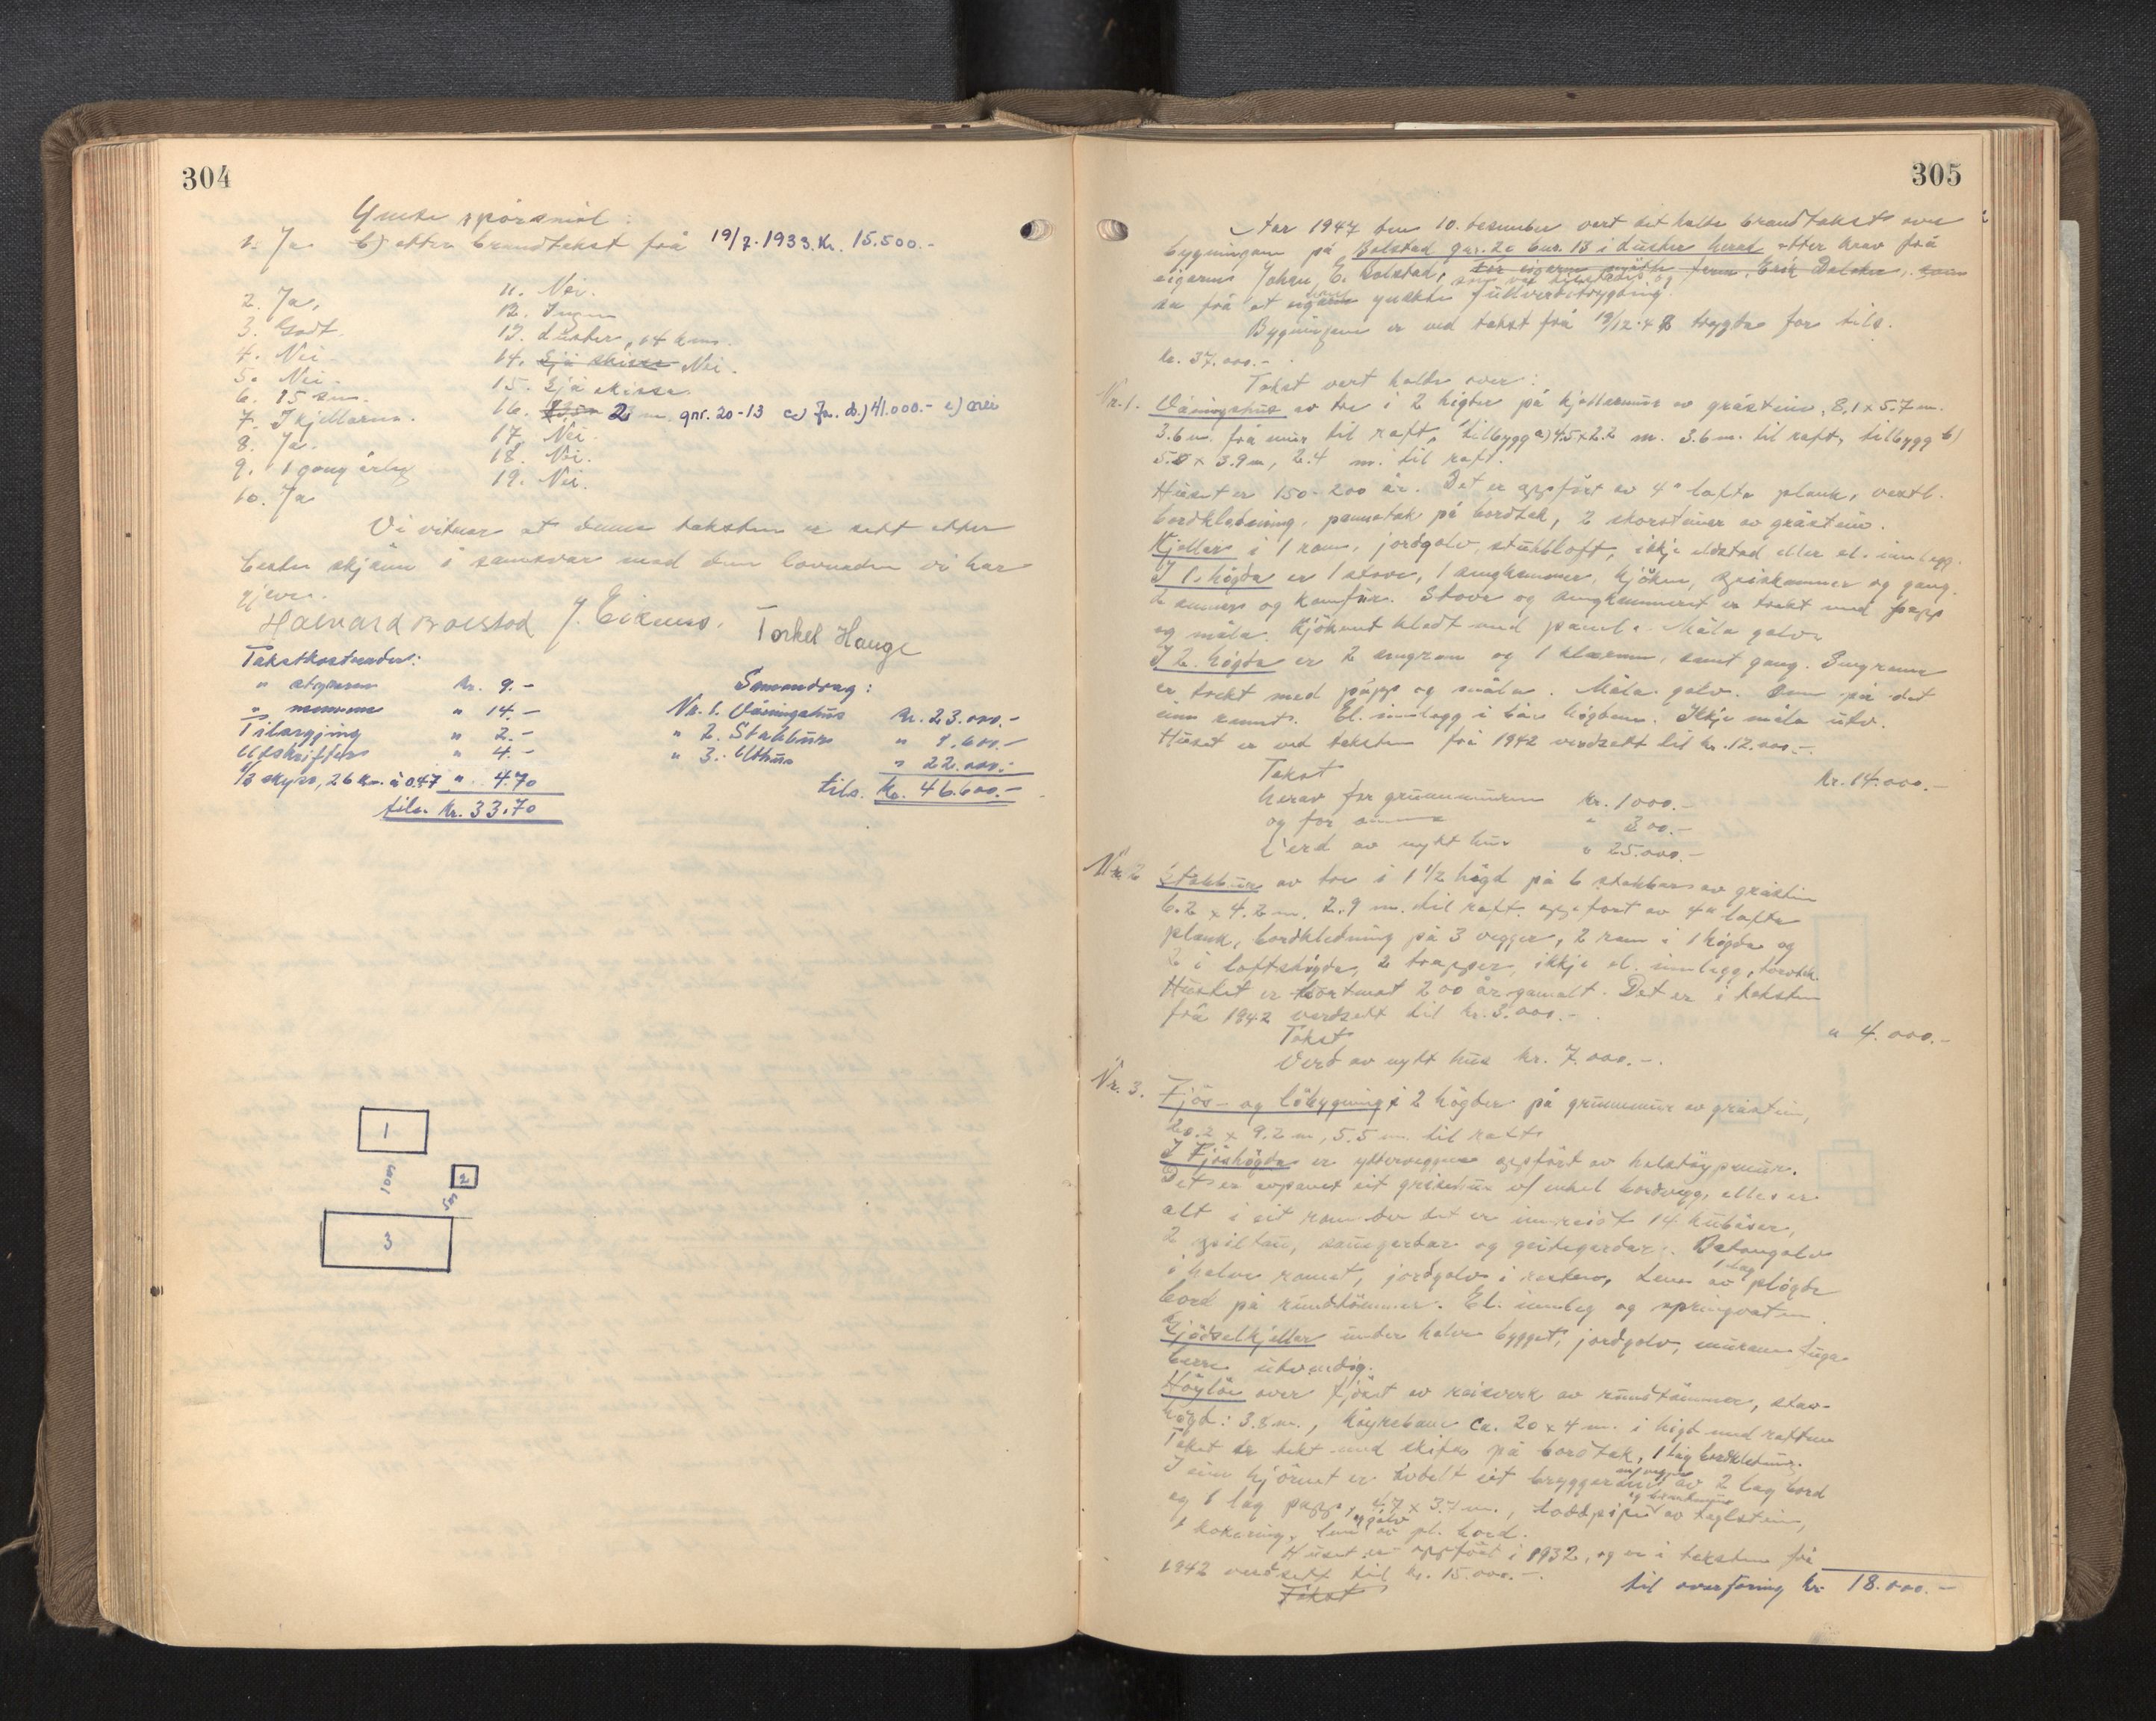 304
Ymse spörsmål:
1. Ja b) etter brandtakst frå 19/7. 1933. Kr. 15.500.-
2. Ja.
3. Godt.
4. Nei.
5. Nei.
6. 15 cm.
7. I kjellaren.
8. Ja.
9. 1 gong årleg
10. Ja
11. Nei.
12. Ingen
13. Luster, 14 km.
14. Sjå skisse Nei.
15. Sjå skisse.
16. 2 m. gnr. 20-13 c) Ja. d.) 41.000.- e) nei
17. Nei.
18. Nei.
19. Nei.
Vi vitnar at denne taksten er sett etter
beste skjönn i samsvar med den lovnaden vi har
gjeve.
Halvard Bolstad J. Eikum. Torkel Hauge
Takstkostnader:
" styraren kr. 9.-
" mennene " 14.-
Tilsegjing " 2.-
Utskrifter " 4.-
1/3 skyss, 26 km. à 0.47 " 4.70
tils. kr. 33.70
Samandrag:
Nr. 1. Våningshus kr. 23.000.-
" 2. Stabbur " 1.600.-
" 3. Uthus " 22.000.-
tils. kr. 46.600.-
1
10m
2
5m
3
305
År 1947 den 10. desember vert det halde brandtakst over
bygningane på Bolstad gnr. 20 bnr. 13 i Luster herad etter krav frå
eigaren Johan E. Bolstad, For eigaren møtte Erik Dalsören, som
som var tilstades og
sa frå at eigaren ynskte fullverditrygding.
Bygningane er ved takst frå 19/12.42 trygda for tils.
kr. 37.000.-
Takst vert halde over:
Nr. 1. Våningshus av tre i 2 högder på kjellarmur av gråstein, 8,1 x 5.7 m.
3.6 m. frå mur til raft, tilbygg a) 4.5 x 2.2 m. 3.6 m. til raft, tilbygg b)
5.5 x 3.9 m, 2.4 m. til raft.
Huset er 150-200 år. Det er uppfört av 4" lafta plank, vertl.
bordkledning, pannetak på bordtak, 2 skorsteiner av gråstein.
Kjellar i 1 rom, jordgolv, stubbloft, ikkje eldstad eller el. innlegg.
I 1. högda er 1 stove, 1 sengkammer, kjöken, spiskammer og gang.
2 omnar og komfur. Stove og sengkammerset er trekt med papp
og måla. Kjökenet kledt med panel. Måla golv.
I 2. högda er 2 sengrom og 1 , samt gang. Sengromma
er trekt med papp og måla. Måla golv. Omn på det
eine romet. El. innlegg i båe högdene. Ikkje måla utv.
Huset er ved taksten frå 1942 verdsett til kr. 12.000.-.
Takst kr. 14.000.-
herav for grunnmuren kr. 1000.-
og for omnar " 300.-
Verd av nytt hus " 25.000.-
Nr. 2 Stabbur av tre i 1 1/2 högd på 6 stabbar av gråstein
6.2 x 4.2 m. 2.9 m. til raft. uppfört av 4" lafta
plank, bordkledning på 3 vegger, 2 rom i 1 högda og
2 i loftshögda, 2 trapper, ikkje el. innlegg, torvtak.
Huset er bortimot 200 år gamalt. Det er i taksten
frå 1942 verdsett til kr. 3.000.-.
Takst " 4.000.-
Verd av nytt hus kr. 7.000.-.
Nr. 3. Fjös- og löbygning i 2 högder på grunnmur av gråstein,
20.2 x 9.2 m, 5.5 m. til raft.
I Fjöshögda er ytterveggene uppfört av halstöypmur.
Det er avpanet eit grisehus m/ enkel bordvegg, elles er
alt i eit rom der det er innreidt 14 kubåser,
2 , sauegardar og geitegardar. Betongolv
i halve romet, jordgolv i resten, Lem av 1 lag plögde
bord på rundtömmer. El. innleg og springvatn.
Gjödselkjellar under halve bygget, jordgolv, murane fuga
berre utvendig.
Höylöe over fjöset av reisverk av rundtömmer, stav-
högd: 3.8 m., köyrebane ca. 20 x 4 m. i högd med raften
Taket er tekt med skifer på bordtak, 1 lag bordkledning.
I eine hjörnet er avdelt eit bryggerhus m/ vegger av 2 lag bord
og 1 lag papp, 4.7 x 3.7 m., loddpipe og brandmur av teglstein,
1 kokering, lem og golv av pl. bord.
Huset er uppfört i 1932, og er i taksten frå
1942 verdsett til kr. 15.000.-.
Takst
til overföring kr. 18.000.-